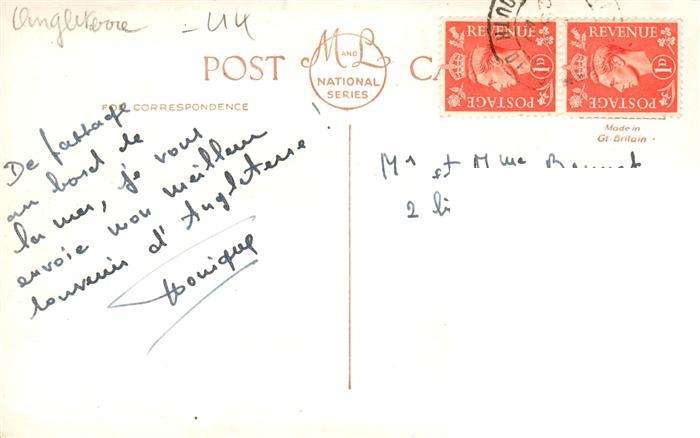 Angleterre - UK
POST CA
M AND L
NATIONAL
SERIES
FOR CORRESPONDENCE
REVENUE
1D
POSTAGE
REVENUE
1D
POSTAGE
Made in
Gt. Britain
De passage
au bord de
la mer, je vous
envoie mon meilleur
souvenir d'Angleterre !
Monique
Mr et Mme
2